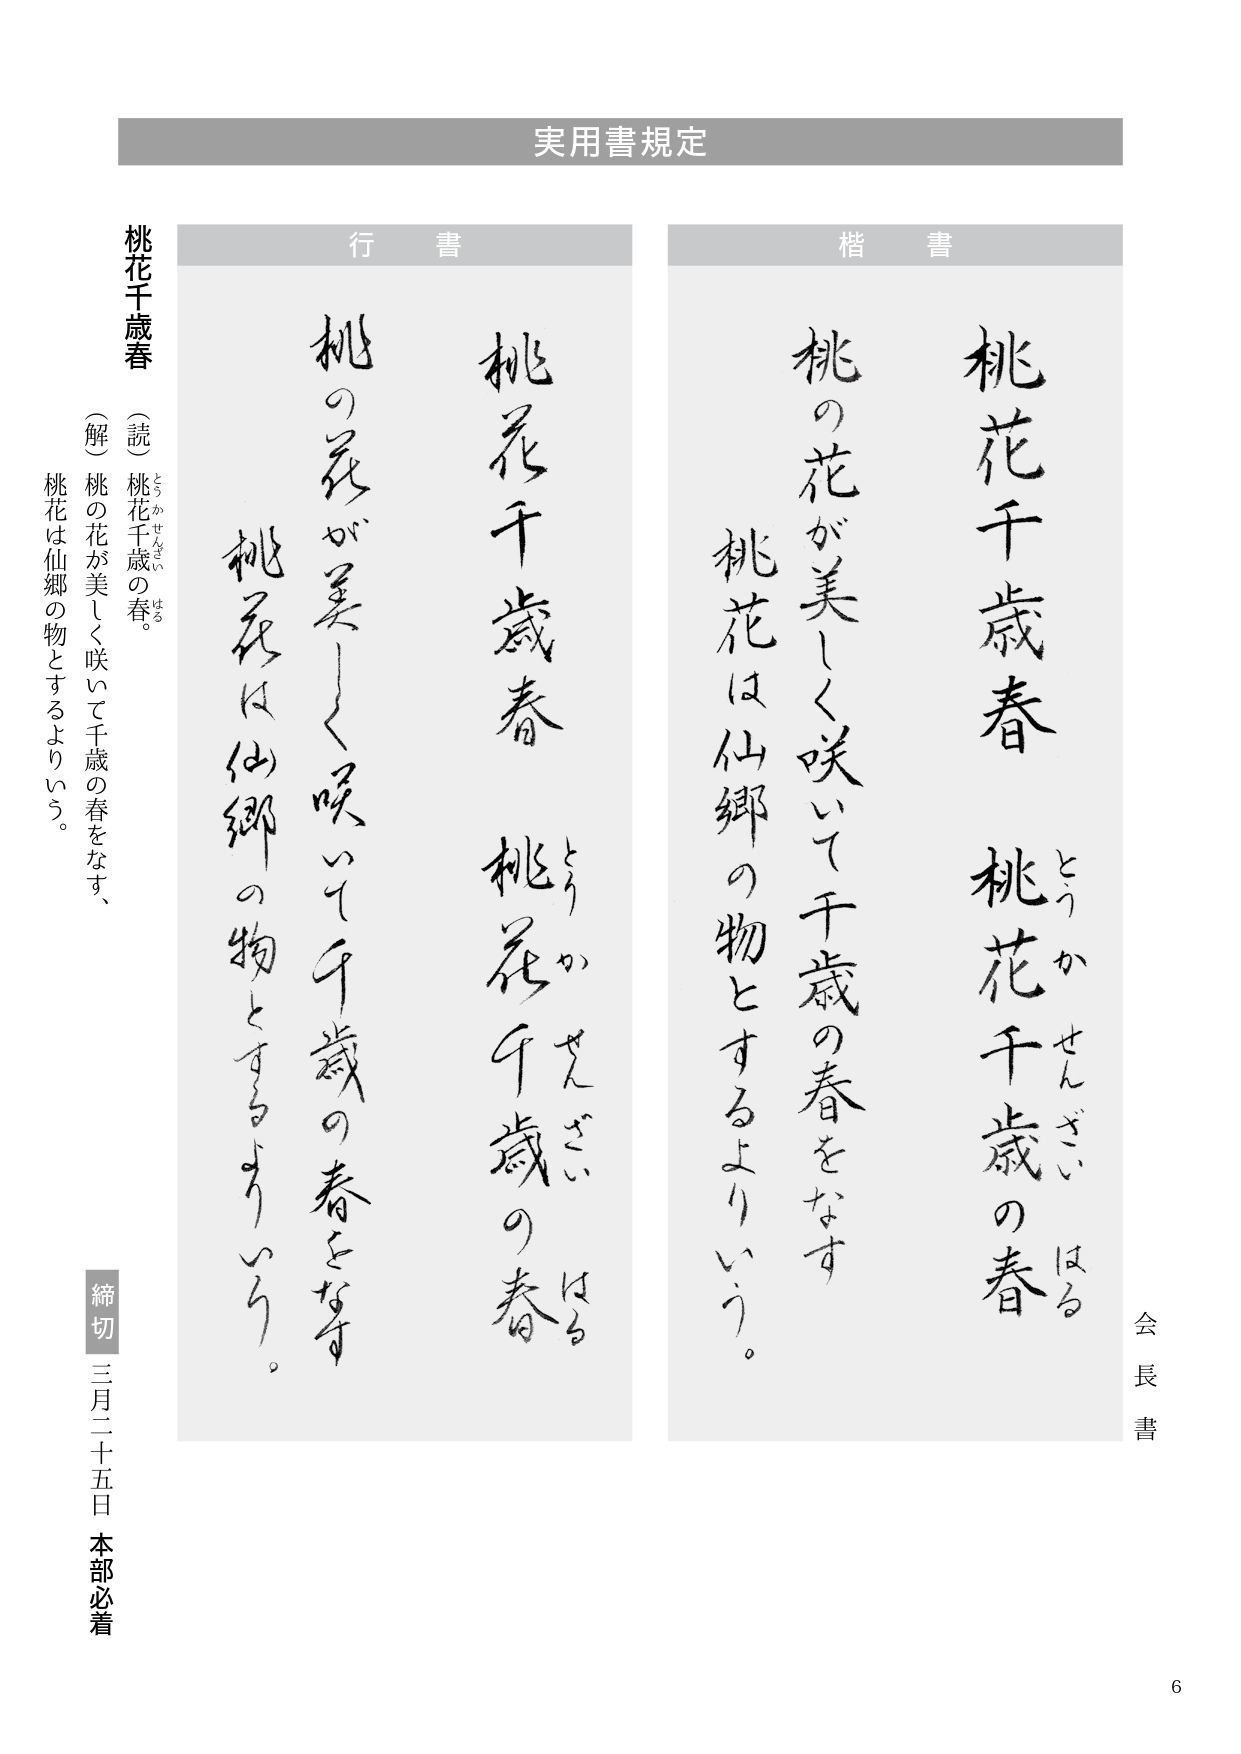 実用書規定
楷書
桃花千歳春 桃花千歳の春
とうか せんざい はる
桃の花が美しく咲いて千歳の春をなす
桃花は仙郷の物とするよりいう。
会長書
行書
桃花千歳春 桃花千歳の春
とうか せんざい はる
桃の花が美しく咲いて千歳の春をなす
桃花は仙郷の物とするよりいう。
桃花千歳春
（読）桃花千歳の春。
とうかせんざい はる
（解）桃の花が美しく咲いて千歳の春をなす、
桃花は仙郷の物とするよりいう。
締切 三月二十五日 本部必着
6